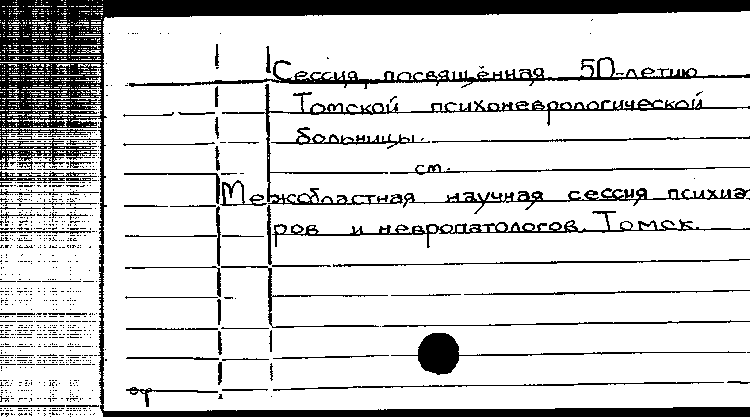 Сессия, посвящённая 50-летию
Томской психоневрологической
больницы.
см.
Межобластная научная сессия психиа
ров и невропатологов. Томск.